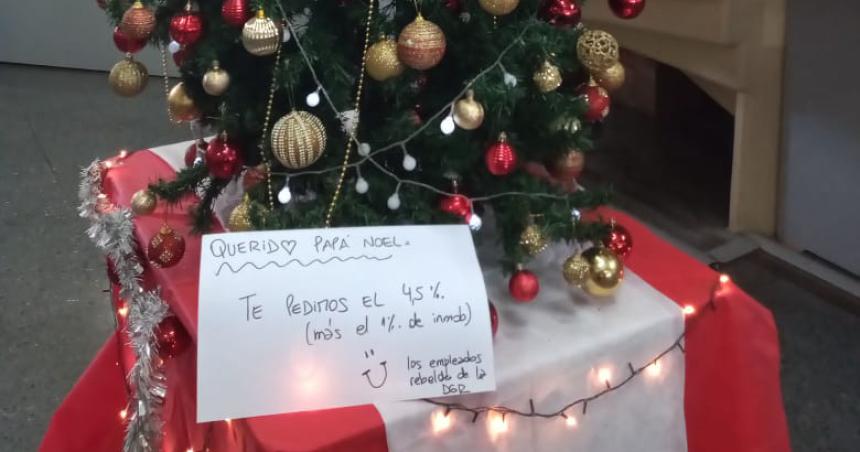 QUERIDO PAPÁ NOEL.
TE PEDIMOS EL 4,5%.
(más el 1%. de inmob)
los empleados
rebeldes de la
DGR